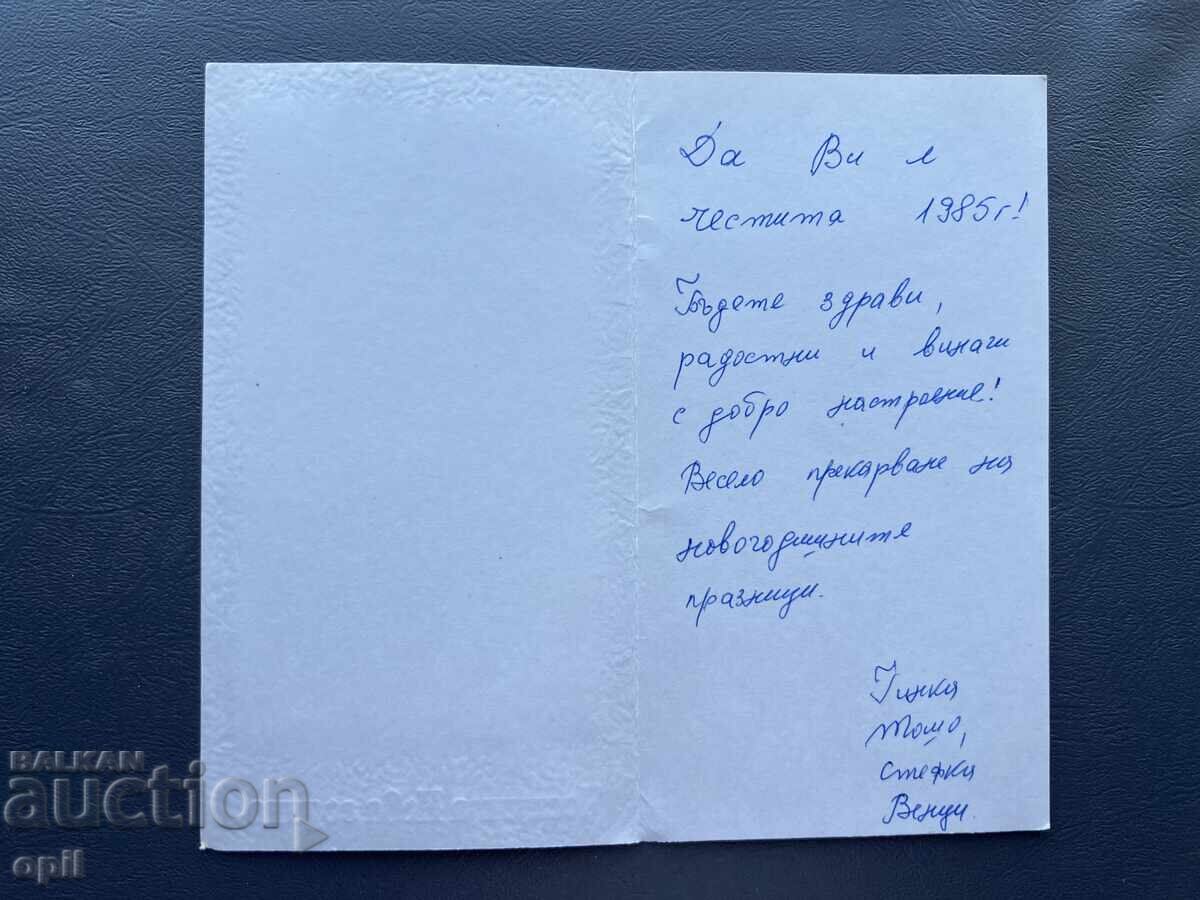 Да Ви е
честита 1985г!
Бъдете здрави,
радостни и винаги
с добро настроение!
Весело прекарване на
новогодишните
празници.
Гинка
Томо,
Стефка
Венци.
BALKAN
auction
opil